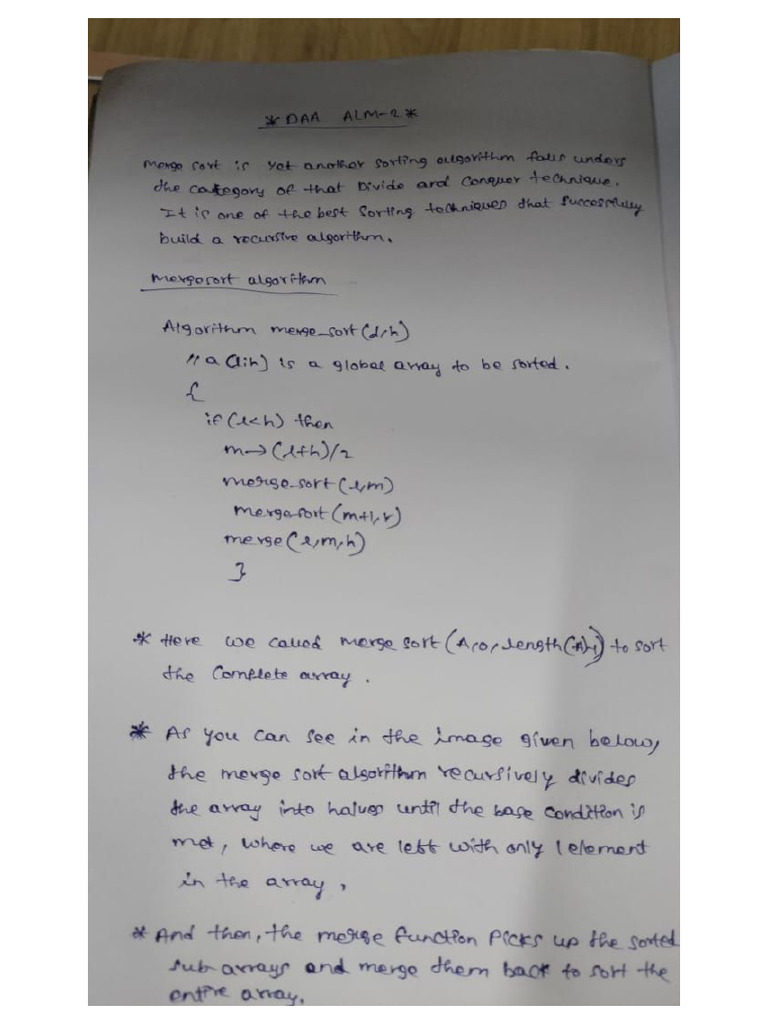 * DAA ALM-2 *
Merge sort is yet another sorting algorithm falls unders
the category of that Divide and Conquer technique.
It is one of the best sorting techniques that successfully
build a recursive algorithm.
Mergesort algorithm
Algorithm merge_sort(l,h)
// a[l:h] is a global array to be sorted.
{
if(l<h) then
m→(l+h)/2
merge_sort(l,m)
mergesort(m+1,r)
merge(l,m,h)
}
* Here we called merge sort(A,0,length(A)-1) to sort
the Complete array.
* As you can see in the image given below,
the merge sort algorithm recursively divides
the array into halves until the base condition is
met, where we are left with only 1 element
in the array,
* And then, the merge function Picks up the sorted
sub arrays and merge them back to sort the
entire array.